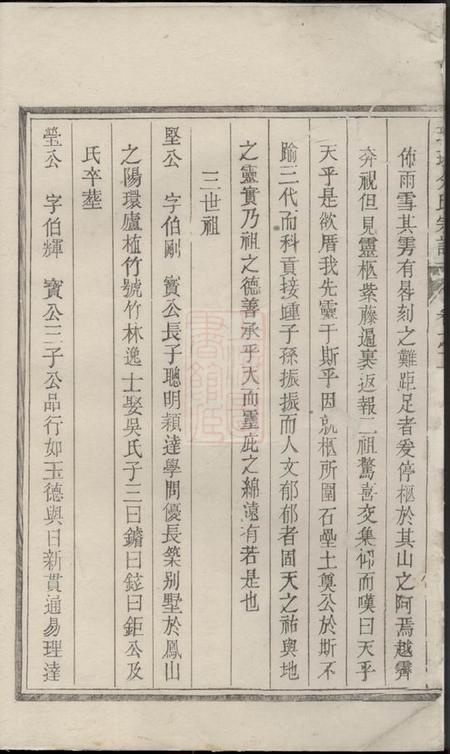 佈雨雪其雱有晷刻之難距足者爰停柩於其山之阿焉越霽
奔視但見靈柩紫藤遍裹返報二祖驚喜交集仰而嘆曰天乎
天乎是欲厝我先靈于斯乎因就柩所圍石壘土奠公於斯不
踰三代而科貢接踵子孫振振而人文郁郁者固天之祐與地
之靈實乃祖之德善承乎天而靈庇之綿遠有若是也
三世祖
堅公 字伯剛 實公長子聰明穎達學問優長築别墅於鳳山
之陽環廬植竹號竹林逸士娶吳氏子三曰鏛曰鉉曰鉅公及
氏卒塟
瑩公 字伯輝 寶公三子公品行如玉德與日新貫通易理達